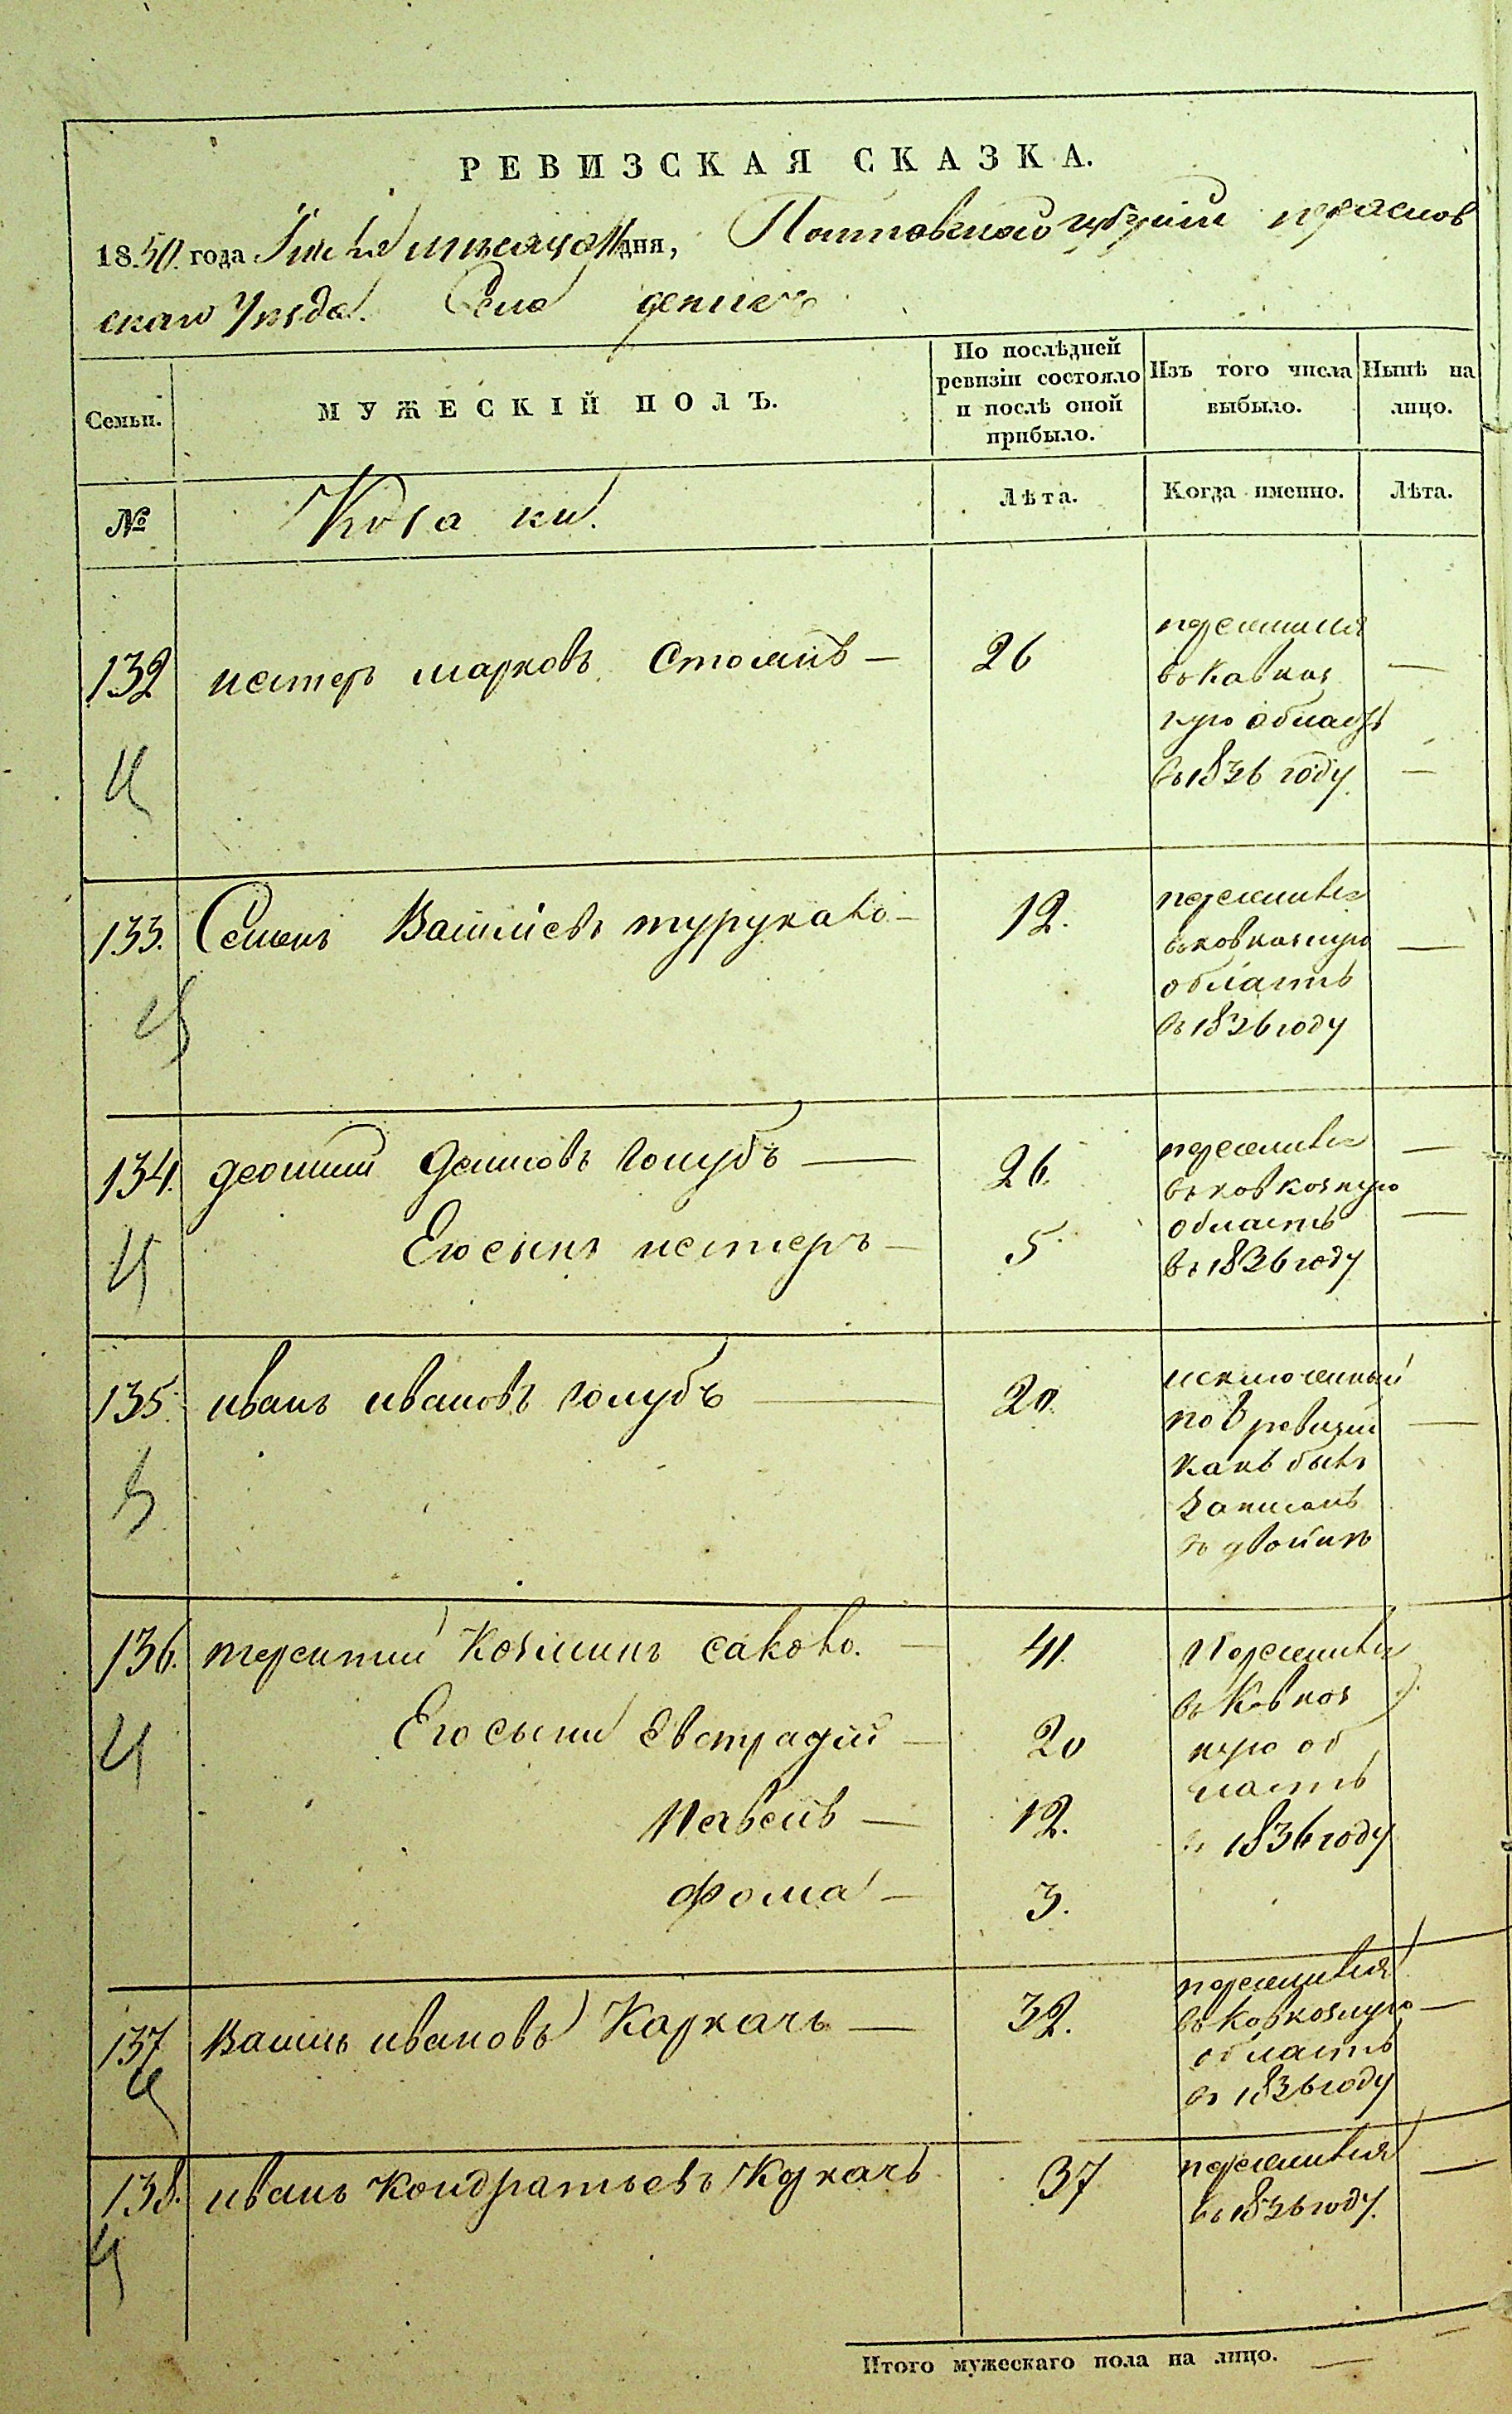 РЕВИЗСКАЯ СКАЗКА.
1850 года Июня месяца дня, Полтавской губернии прилуков
скаго Уезда. Села
Семьи. МУЖЕСКІЙ ПОЛЪ. По послѣдней ревизіи состояло и послѣ оной прибыло. Изъ того числа выбыло. Нынѣ на лицо.
№ Козаки. Лѣта. Когда именно. Лѣта.
132 нестеръ марковъ 26
переселился
въ Кавказ
кую область
въ 1836 году
133. Семенъ Василіевъ 12.
переселився
въ кавказкую
область
въ 1836 году
134. леонтий голубъ 26.
Его сынъ нестеръ 5
переселився
въ кавказкую
область
въ 1836 году
135 иванъ ивановъ голубъ 20.
исключенный
по ревизии
какъ бывъ
Записанъ
въ двойнѣ
136. терентий Козминъ саково. 41.
Его сыни Евстрафій 20
Павелъ 12.
фома 3.
Переселився
въ Кавказ
кую об
ласть
въ 1836 году
137 Василь ивановъ Каркачъ 32.
переселився
въ Кавказкую
область
въ 1836 году
138. иванъ Кондратьевъ 37
переселився
въ 1836 году.
Итого мужескаго пола на лицо.